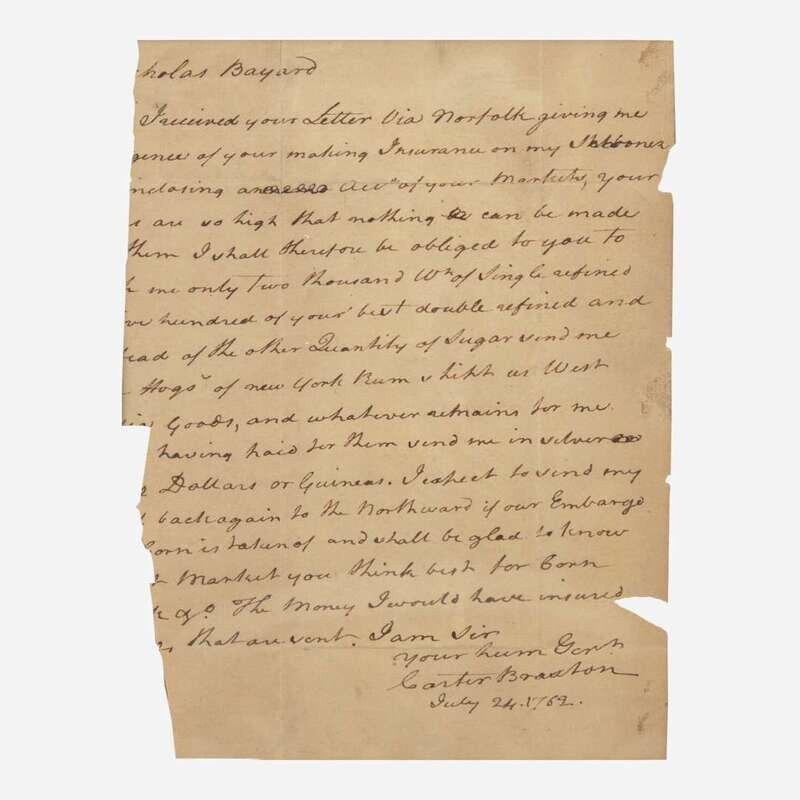 cholas Bayard
I received your Letter Via Norfolk giving me
gence of your making Insurance on my Schooner
nclosing an Acct of your Markets, your
s are so high that nothing can be made
them I shall therefore be obliged to you to
me only two thousand Wt. of Single refined
ve hundred of your best double refined and
ead of the other Quantity of Sugar send me
Hogs. of new York Rum & West
Goods, and whatever remains for me
having paid for them send me in silver
Dollars or Guineas. I expect to send my
back again to the Northward if our Embargo
Corn is taken of and shall be glad to know
Market you think best for Corn
&c. The Money I would have insured
that are sent. I am Sir
your hum Servt.
Carter Braxton
July 24. 1762.